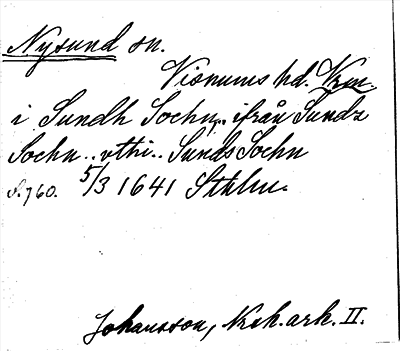 Nysund sn.
Visnums hd. Vrm.
i Sundh Sochn.. ifrån Sundz
Sochn.. vthi.. Sunds Sochn
S. 760. 5/3 1641 Sthlm.
Johansson, Krih. ark. II.